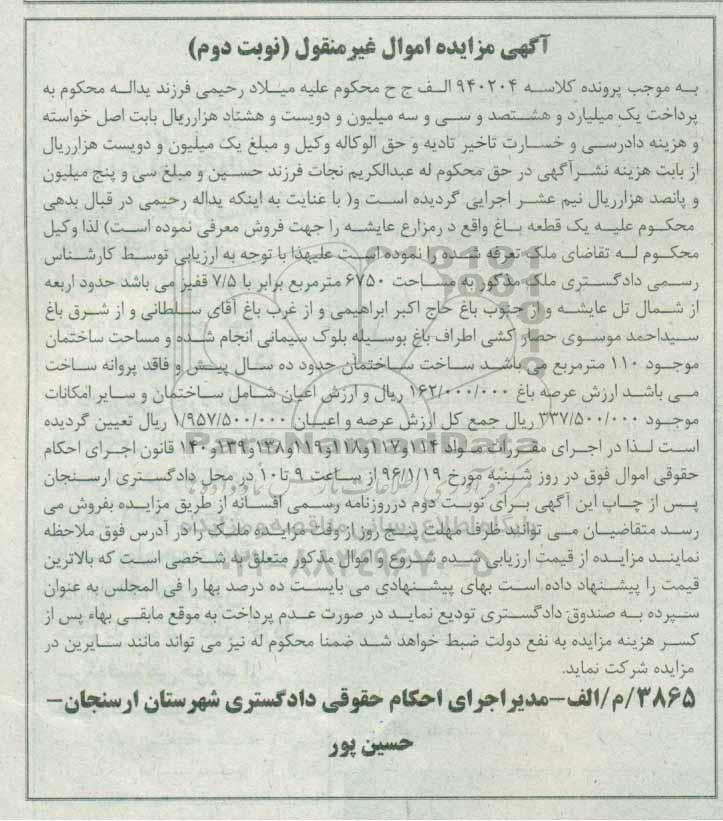 آگهی مزایده اموال غیرمنقول (نوبت دوم)
به موجب پرونده کلاسه ۹۴۰۲۰۴ الف ج ح محکوم علیه میلاد رحیمی فرزند یداله محکوم به
پرداخت یک میلیارد و هشتصد و سی و سه میلیون و دویست و هشتاد هزارریال بابت اصل خواسته
و هزینه دادرسی و خسارت تاخیر تادیه و حق الوکاله وکیل و مبلغ یک میلیون و دویست هزارریال
از بابت هزینه نشرآگهی در حق محکوم له عبدالکریم نجات فرزند حسین و مبلغ سی و پنج میلیون
و پانصد هزارریال نیم عشر اجرایی گردیده است و( با عنایت به اینکه یداله رحیمی در قبال بدهی
محکوم علیه یک قطعه باغ واقع د رمزارع عایشه را جهت فروش معرفی نموده است) لذا وکیل
محکوم له تقاضای ملک تعرفه شده را نموده است علیهذا با توجه به ارزیابی توسط کارشناس
رسمی دادگستری ملک مذکور به مساحت ۶۷۵۰ مترمربع برابر با ۷/۵ قفیز می باشد حدود اربعه
از شمال تل عایشه و از جنوب باغ حاج اکبر ابراهیمی و از غرب باغ آقای سلطانی و از شرق باغ
سیداحمد موسوی حصار کشی اطراف باغ بوسیله بلوک سیمانی انجام شده و مساحت ساختمان
موجود ۱۱۰ مترمربع می باشد ساخت ساختمان حدود ده سال پیش و فاقد پروانه ساخت
می باشد ارزش عرصه باغ ۱۶۲/۰۰۰/۰۰۰ ریال و ارزش اعیان شامل ساختمان و سایر امکانات
موجود ۳۳۷/۵۰۰/۰۰۰ ریال جمع کل ارزش عرصه و اعیان ۱/۹۵۷/۵۰۰/۰۰۰ ریال تعیین گردیده
است لذا در اجرای مقررات مواد ۱۱۴و۱۱۷و۱۱۸و۱۱۹و۱۳۸و۱۳۹و۱۴۰ قانون اجرای احکام
حقوقی اموال فوق در روز شنبه مورخ ۹۶/۱/۱۹ از ساعت ۹ تا۱۰ در محل دادگستری ارسنجان
پس از چاپ این آگهی برای نوبت دوم درروزنامه رسمی افسانه از طریق مزایده بفروش می
رسد متقاضیان می توانند ظرف مهلت پنج روز از وقت مزایده ملک را در آدرس فوق ملاحظه
نمایند مزایده از قیمت ارزیابی شده شروع و اموال مذکور متعلق به شخصی است که بالاترین
قیمت را پیشنهاد داده است بهای پیشنهادی می بایست ده درصد بها را فی المجلس به عنوان
سپرده به صندوق دادگستری تودیع نماید در صورت عدم پرداخت به موقع مابقی بهاء پس از
کسر هزینه مزایده به نفع دولت ضبط خواهد شد ضمنا محکوم له نیز می تواند مانند سایرین در
مزایده شرکت نماید.
۳۸۶۵/م/الف-مدیراجرای احکام حقوقی دادگستری شهرستان ارسنجان-
حسین پور
ParsNamadData